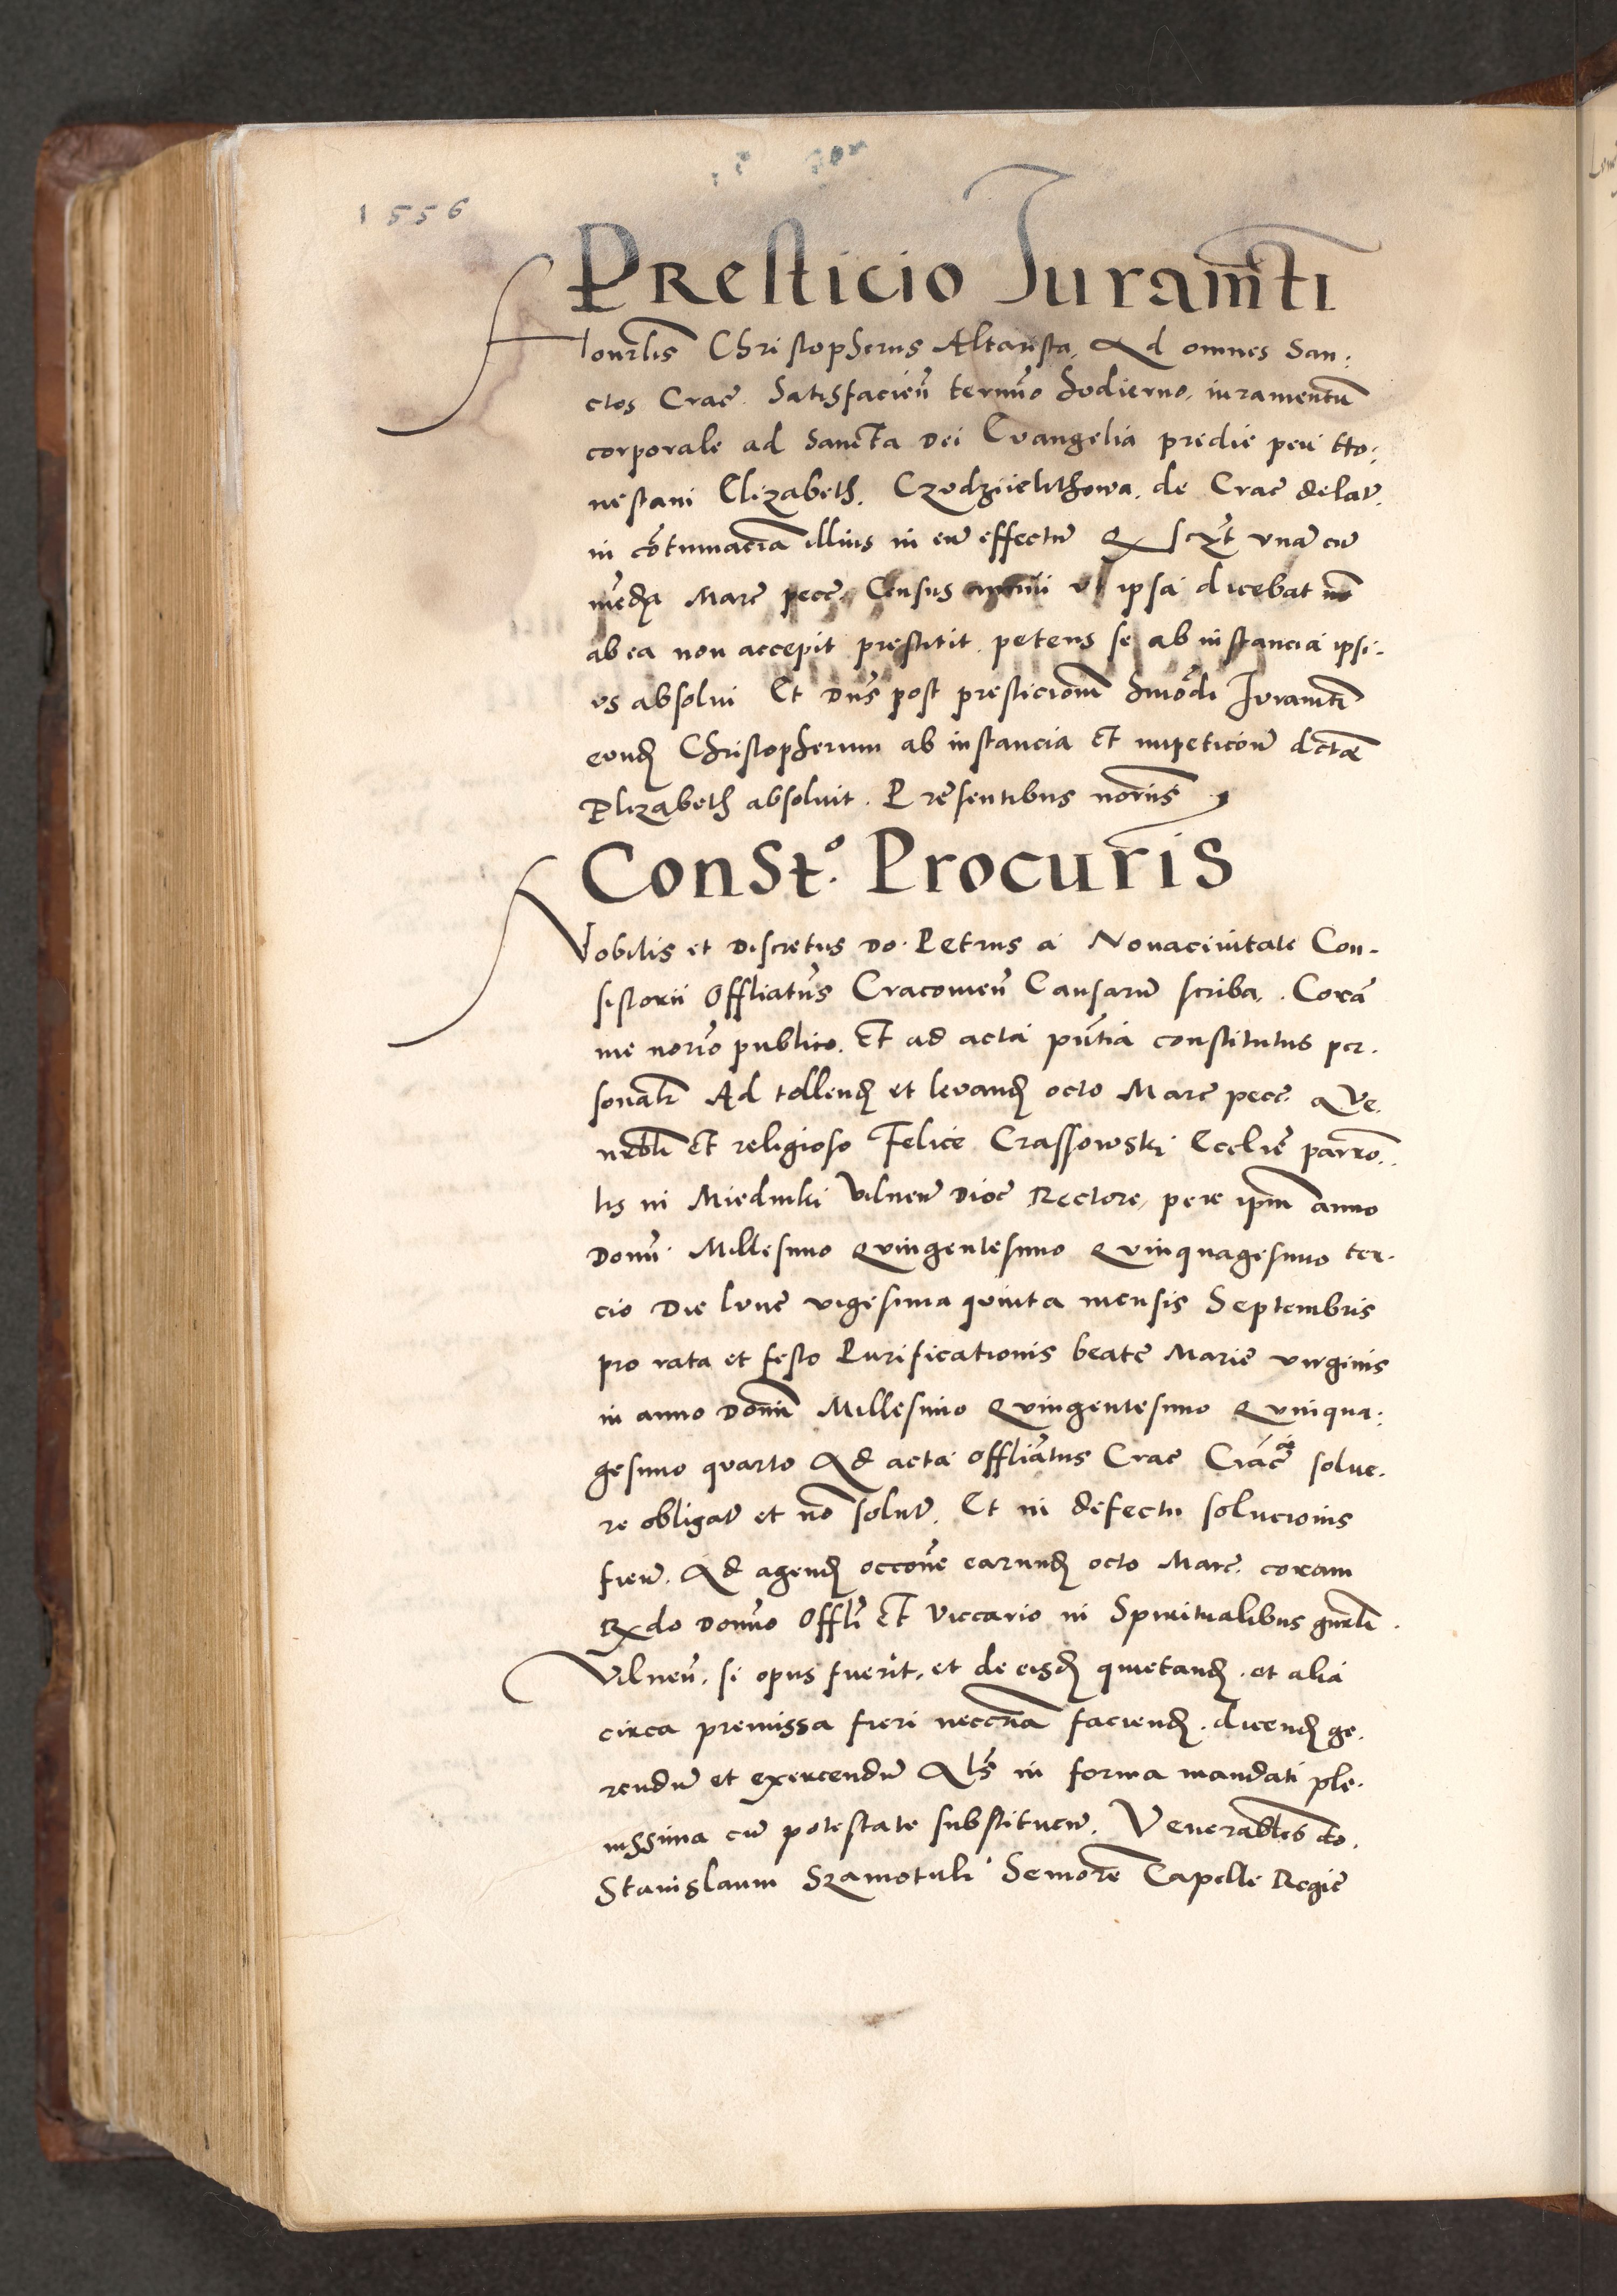 1556
PResticio Juramti
Honrlis Christopherus Altarista, Ad omnes San:
ctos Crac. Satisfacien termino hodierno, iuramentu
corporale ad Sancta Dei Evangelia predie peri Ho:
nestam Elizabeth. de Crac delat.
in cotumacia illius in eum effectum Q vna cu
media Marc pecc. Census annui vt ipsa dicebat
ab ea non accepit prestitit. petens se ab instancia ipsi.
vs absolui Et Dns post presticionem hmodi Juramti
eund Christopherum ab instancia et impeticione dictae
Elizabeth absoluit. Presentibus noriis
ConSt.o Procuris
Nobilis et Discretus Do. Petrus a Novacivitate Con.
sistorii Offliatus Cracovien Causarum scriba, . Cora
me norio publico. Et ad acta pntia constitutus per.
sonalr Ad tollend et levand octo Marc pecc. a Ve.
nerbli et religioso Felice Crassowski Ecclie parro.
lis in Miedniki Vilnen Dioc Rectore, per ipm anno
Domi. Millesimo Quingentesimo Quinquagesimo ter.
cio Die lune vigesima quinta mensis Septembris
pro rata et festo Purificationis beate Marie virginis
in anno Domi Millesimo Quingentesimo Quinqua:
gesimo quarto Ad acta Offliatus Crac solve.
re obligat et no solut. Et in defectu solucionis
fien. Ad agend occone earund octo Marc. coram
Rxdo Domino Offli et Viccario in Spiritualibus gnrli.
Vilnen. si opus fuerit, et de eisd quietand. et alia
circa premissa fieri neccria faciend. dicend ge.
rendum et exercendum Als in forma mandati ple.
nissima cum potestate substituen. Venerables do.
Stanislaum Szamotuli Seniore Capelle Regie